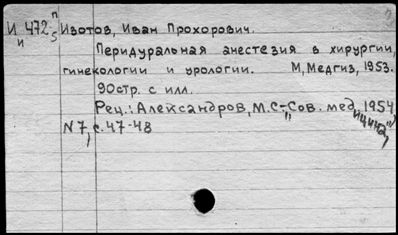 И 472 п Изотов, Иван Прохорович.
и 5
Перидуральная анестезия в хирургии,
гинекологии и урологии. М, Медгиз, 1953.
90стр. с илл.
Рец.: Александров, М.С.- „Сов. мед ицина", 1954,
N7, с. 47-48